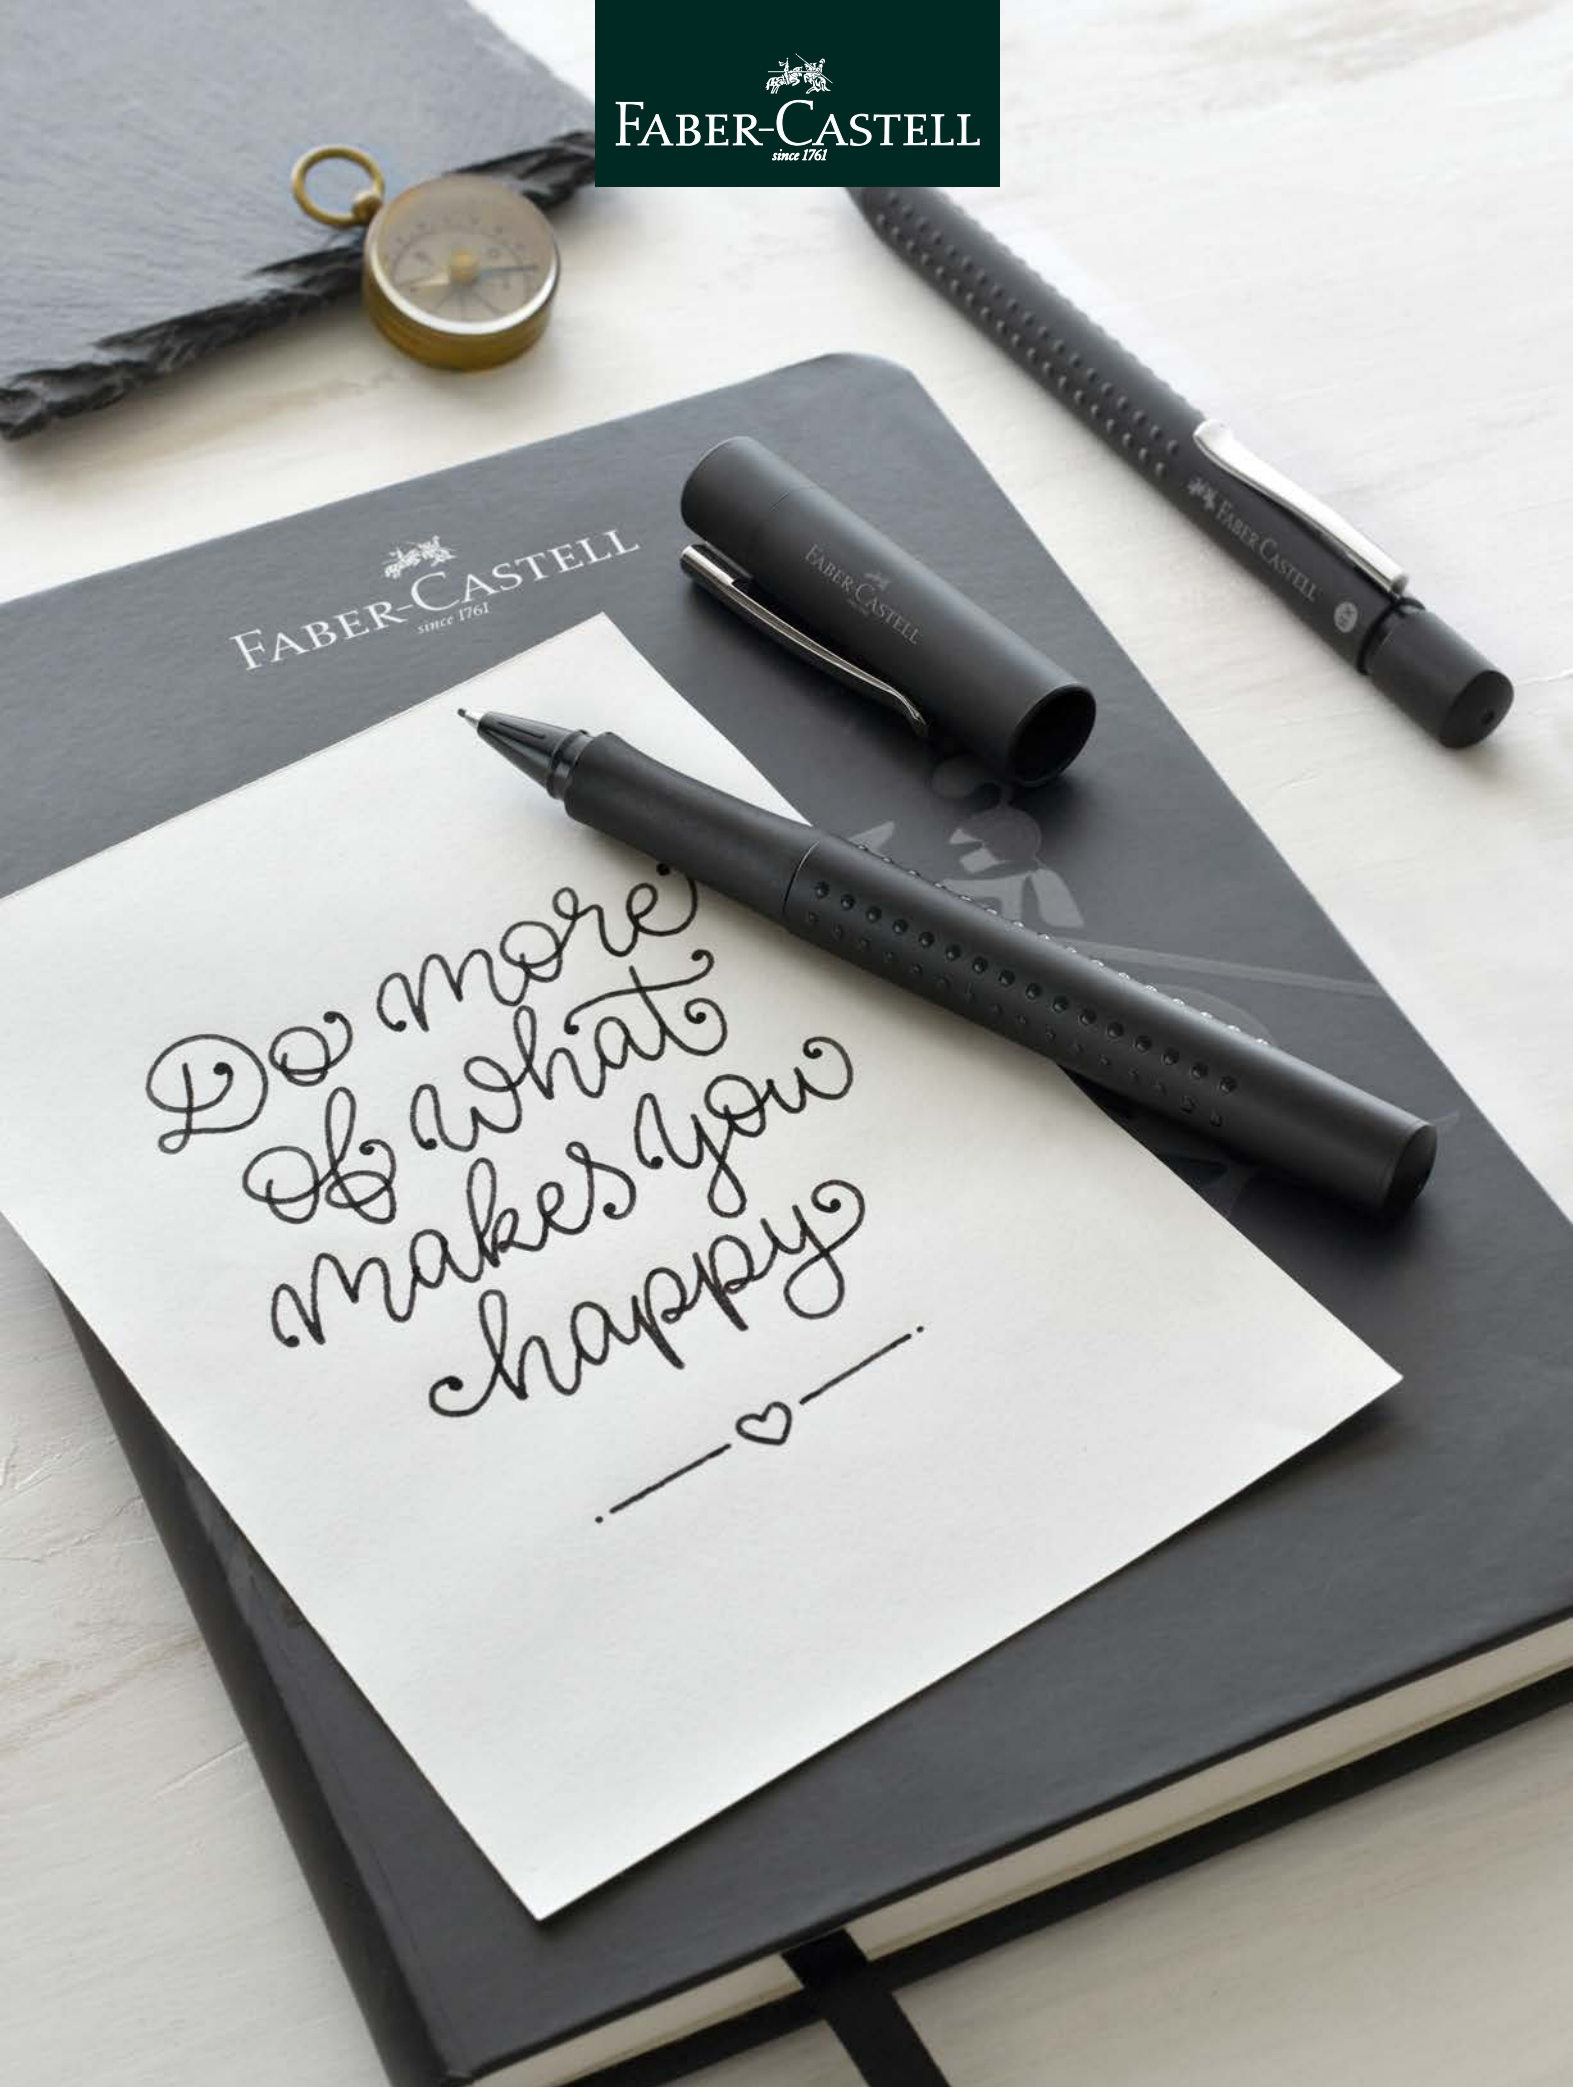 FABER-CASTELL
since 1761
FABER-CASTELL
since 1761
FABER-CASTELL
FABER-CASTELL
XB
Do more
of what
makes you
happy